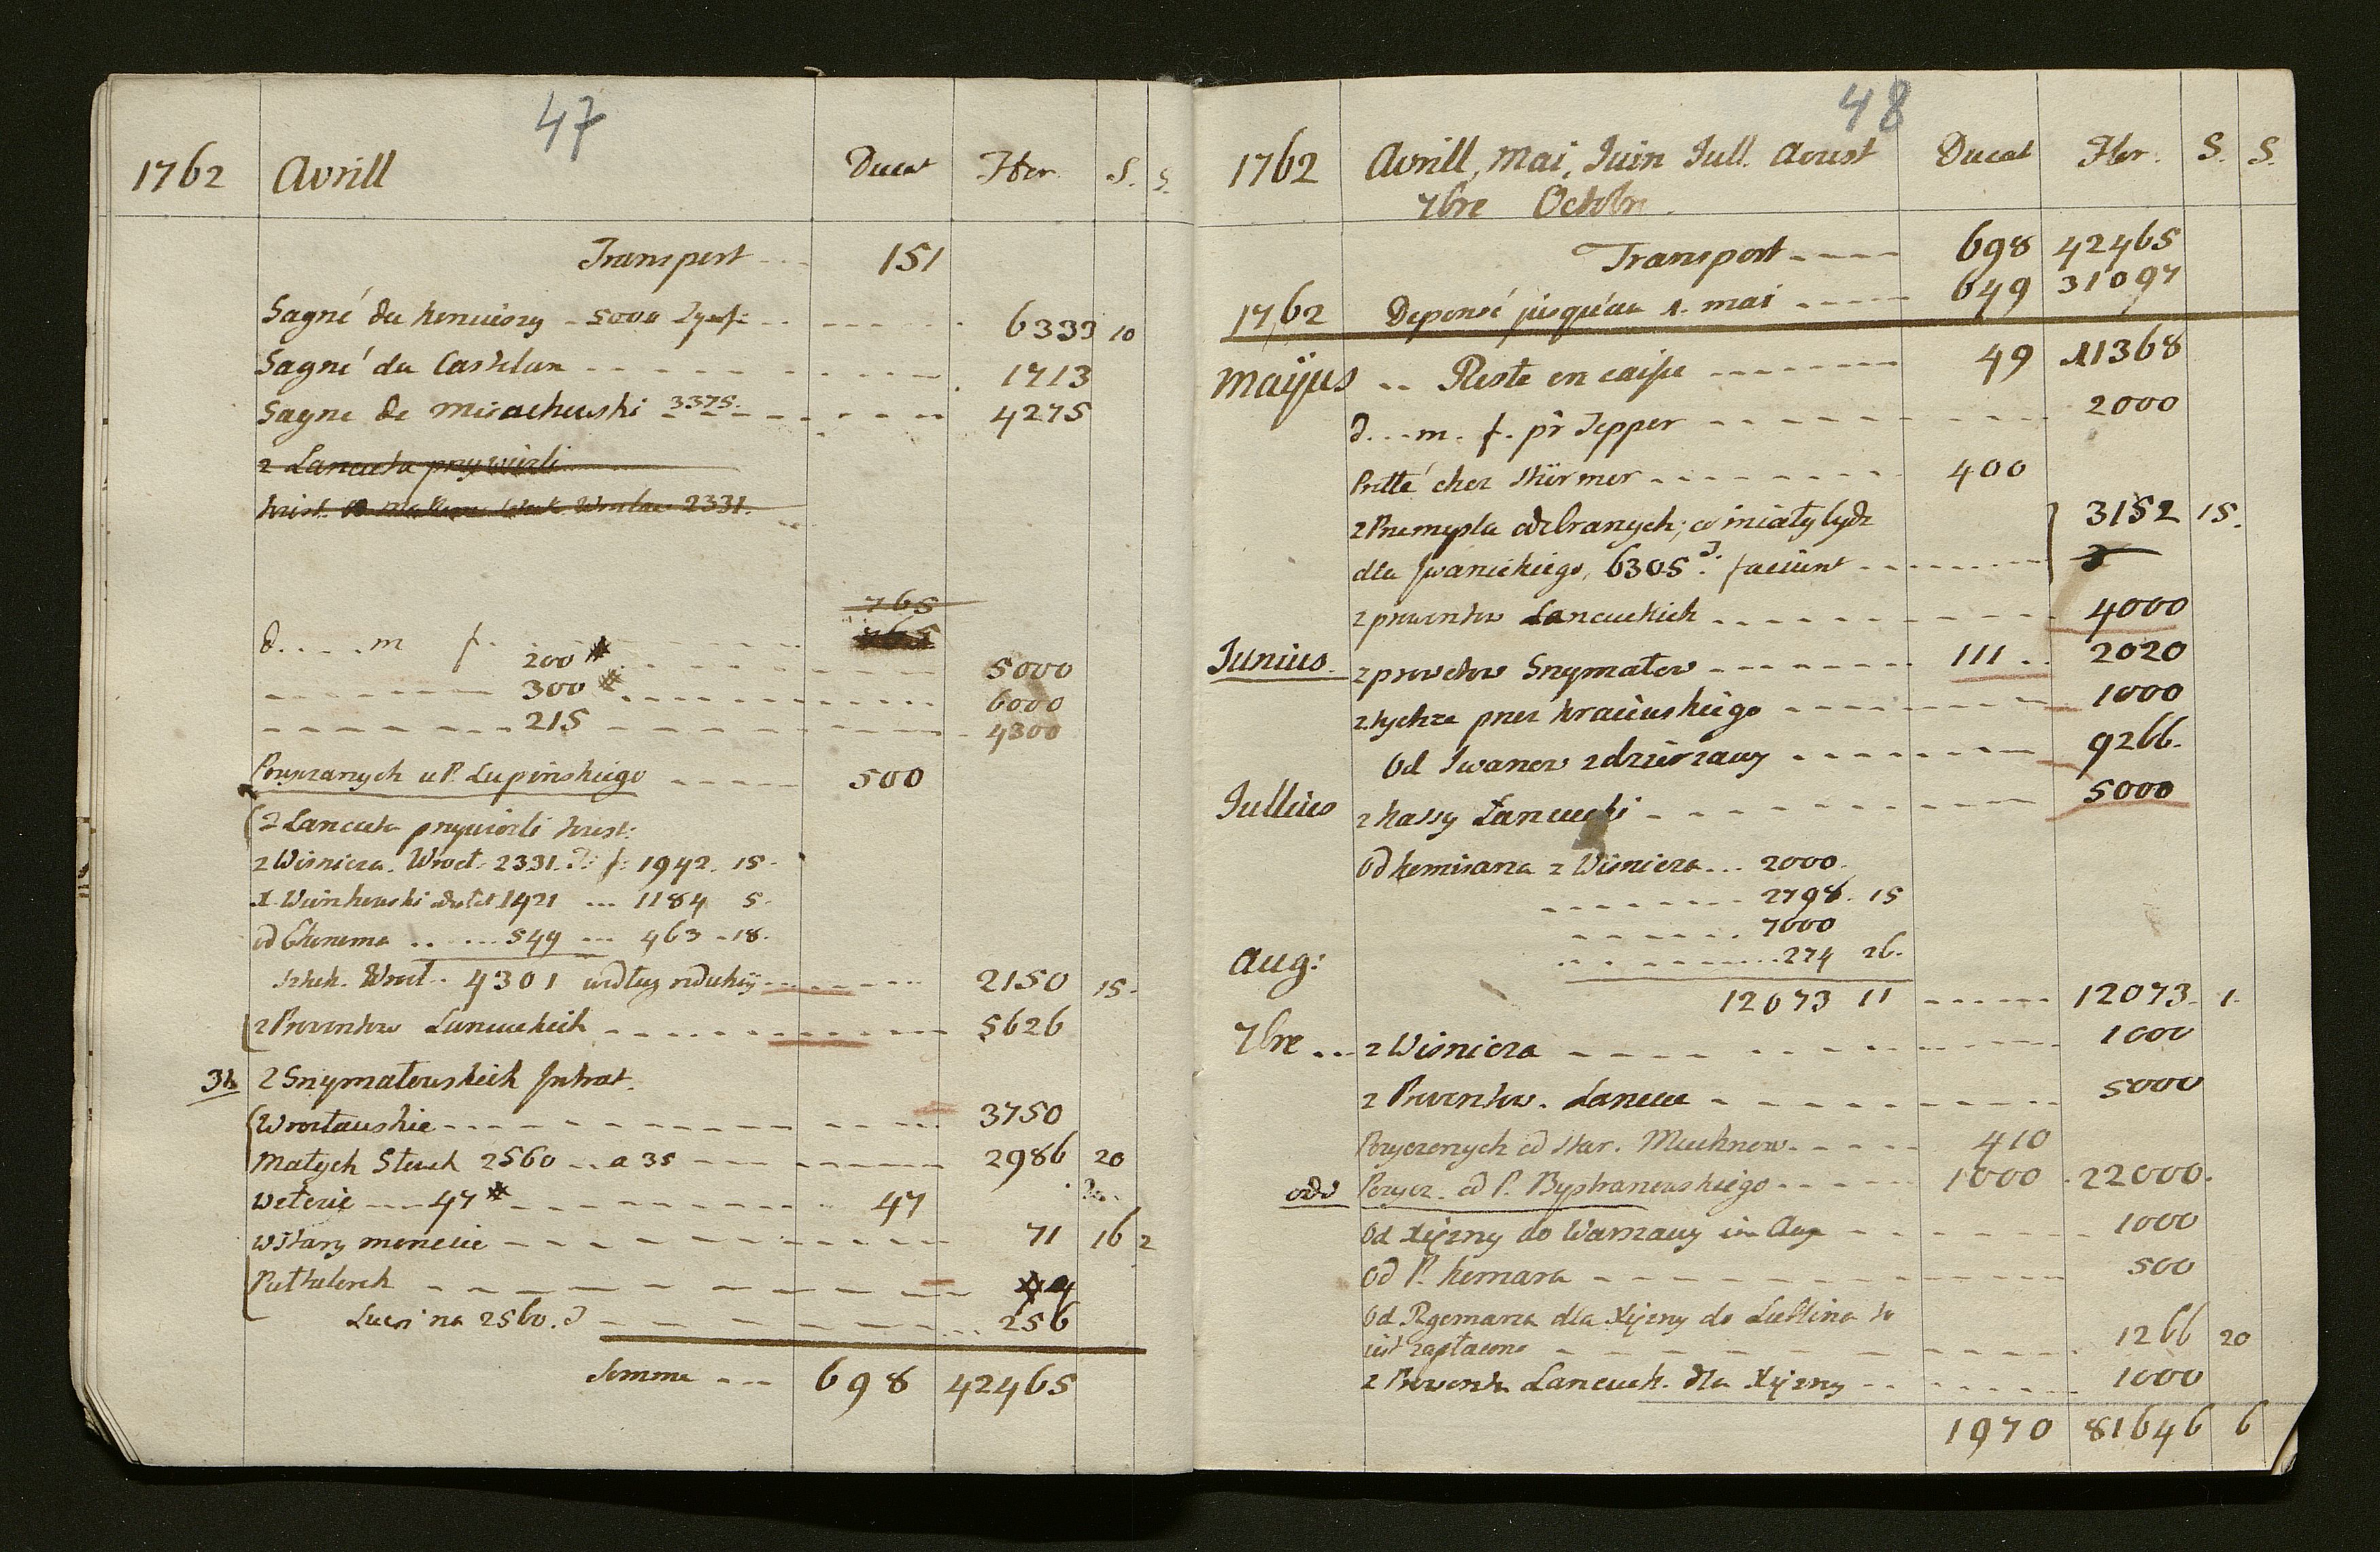 47
1762 Avrill Ducat Flor. S. S.
Transport 151
Gagné du 5000 6333 10
Gagné du Castelan 1713
Gagne de Mirachewski 3375. 4275
z Lancuta przywiezli
2331.
765
d....m f.
200 # 5000
300 # 6000
215 4300
Pozyczanych u P. Lupinskiego 500
z Lancuta przywiozli
z Wisnicza. Wrocł. 2331. f: 1942. 15.
X. 1421 ... 1184 5.
od 549 ... 463 .18.
Wrocł. 4301 według redukcÿ 2150 15.
z Proventow Lancuckich 5626
31. z Szczymałowskich Intrat.
Wrocławskie 3750
Małych Sztuck 2560 .. a 35 2986 20
47 # 47
w Stary monecie 71 16 2
na 2560. 256
Somme 698 42465
48
1762 Avrill, Mai, Juin Jull. Aoust Ducat Flor. S. S.
7bre Octobr.
Transport 698 42465
1762 Deponsé jusqu'au 1. mai 649 31097
Maÿus .. Reste en caisse 49 11368
d...m. f. pr Tepper 2000
Pretté chez Stürmer 400
z Przemysla odebranych, co miały bydz 3152 15.
dla Iwanickiego, 6305 faciunt
z prowentow Lancuckich 4000
Junius z Szczymałow 111 .. 2020
z tychze przez 1000
Od Iwanow z dzierzawy 9266.
Jullius z kassy Łancucki 5000
Od z Wisnicza... 2000.
2798. 15
7000
Aug: 274 26.
12073 11 12073. 1.
7bre ... z Wisnicza 1000
z Proventow. Lancuc 5000
Pozyczonych od Star. 410
Pozycz. od P. Bystranowskiego 1000 22000.
Od Xięzny do Warszawy in Aug 1000
Od P. 500
Od dla Xięzny do Lublina to
iest zapłacono 1266 20
z Lancuck. dla Xięzny 1000
1970 81646 6